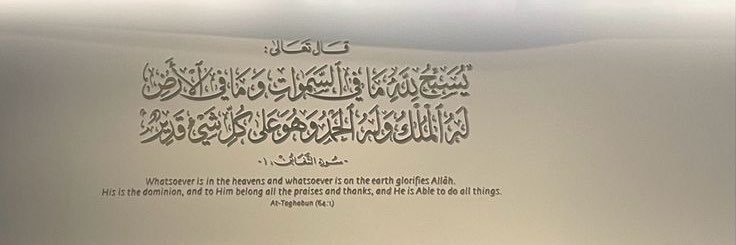 قال تعالى:
يُسَبِّحُ لِلَّهِ مَا فِي السَّمَوَاتِ وَمَا فِي الْأَرْضِ
لَهُ الْمُلْكُ وَلَهُ الْحَمْدُ وَهُوَ عَلَى كُلِّ شَيْءٍ قَدِيرٌ
-سورة التغابن: ١-
Whatsoever is in the heavens and whatsoever is on the earth glorifies Allâh.
His is the dominion, and to Him belong all the praises and thanks, and He is Able to do all things.
At-Taghabun (64:1)